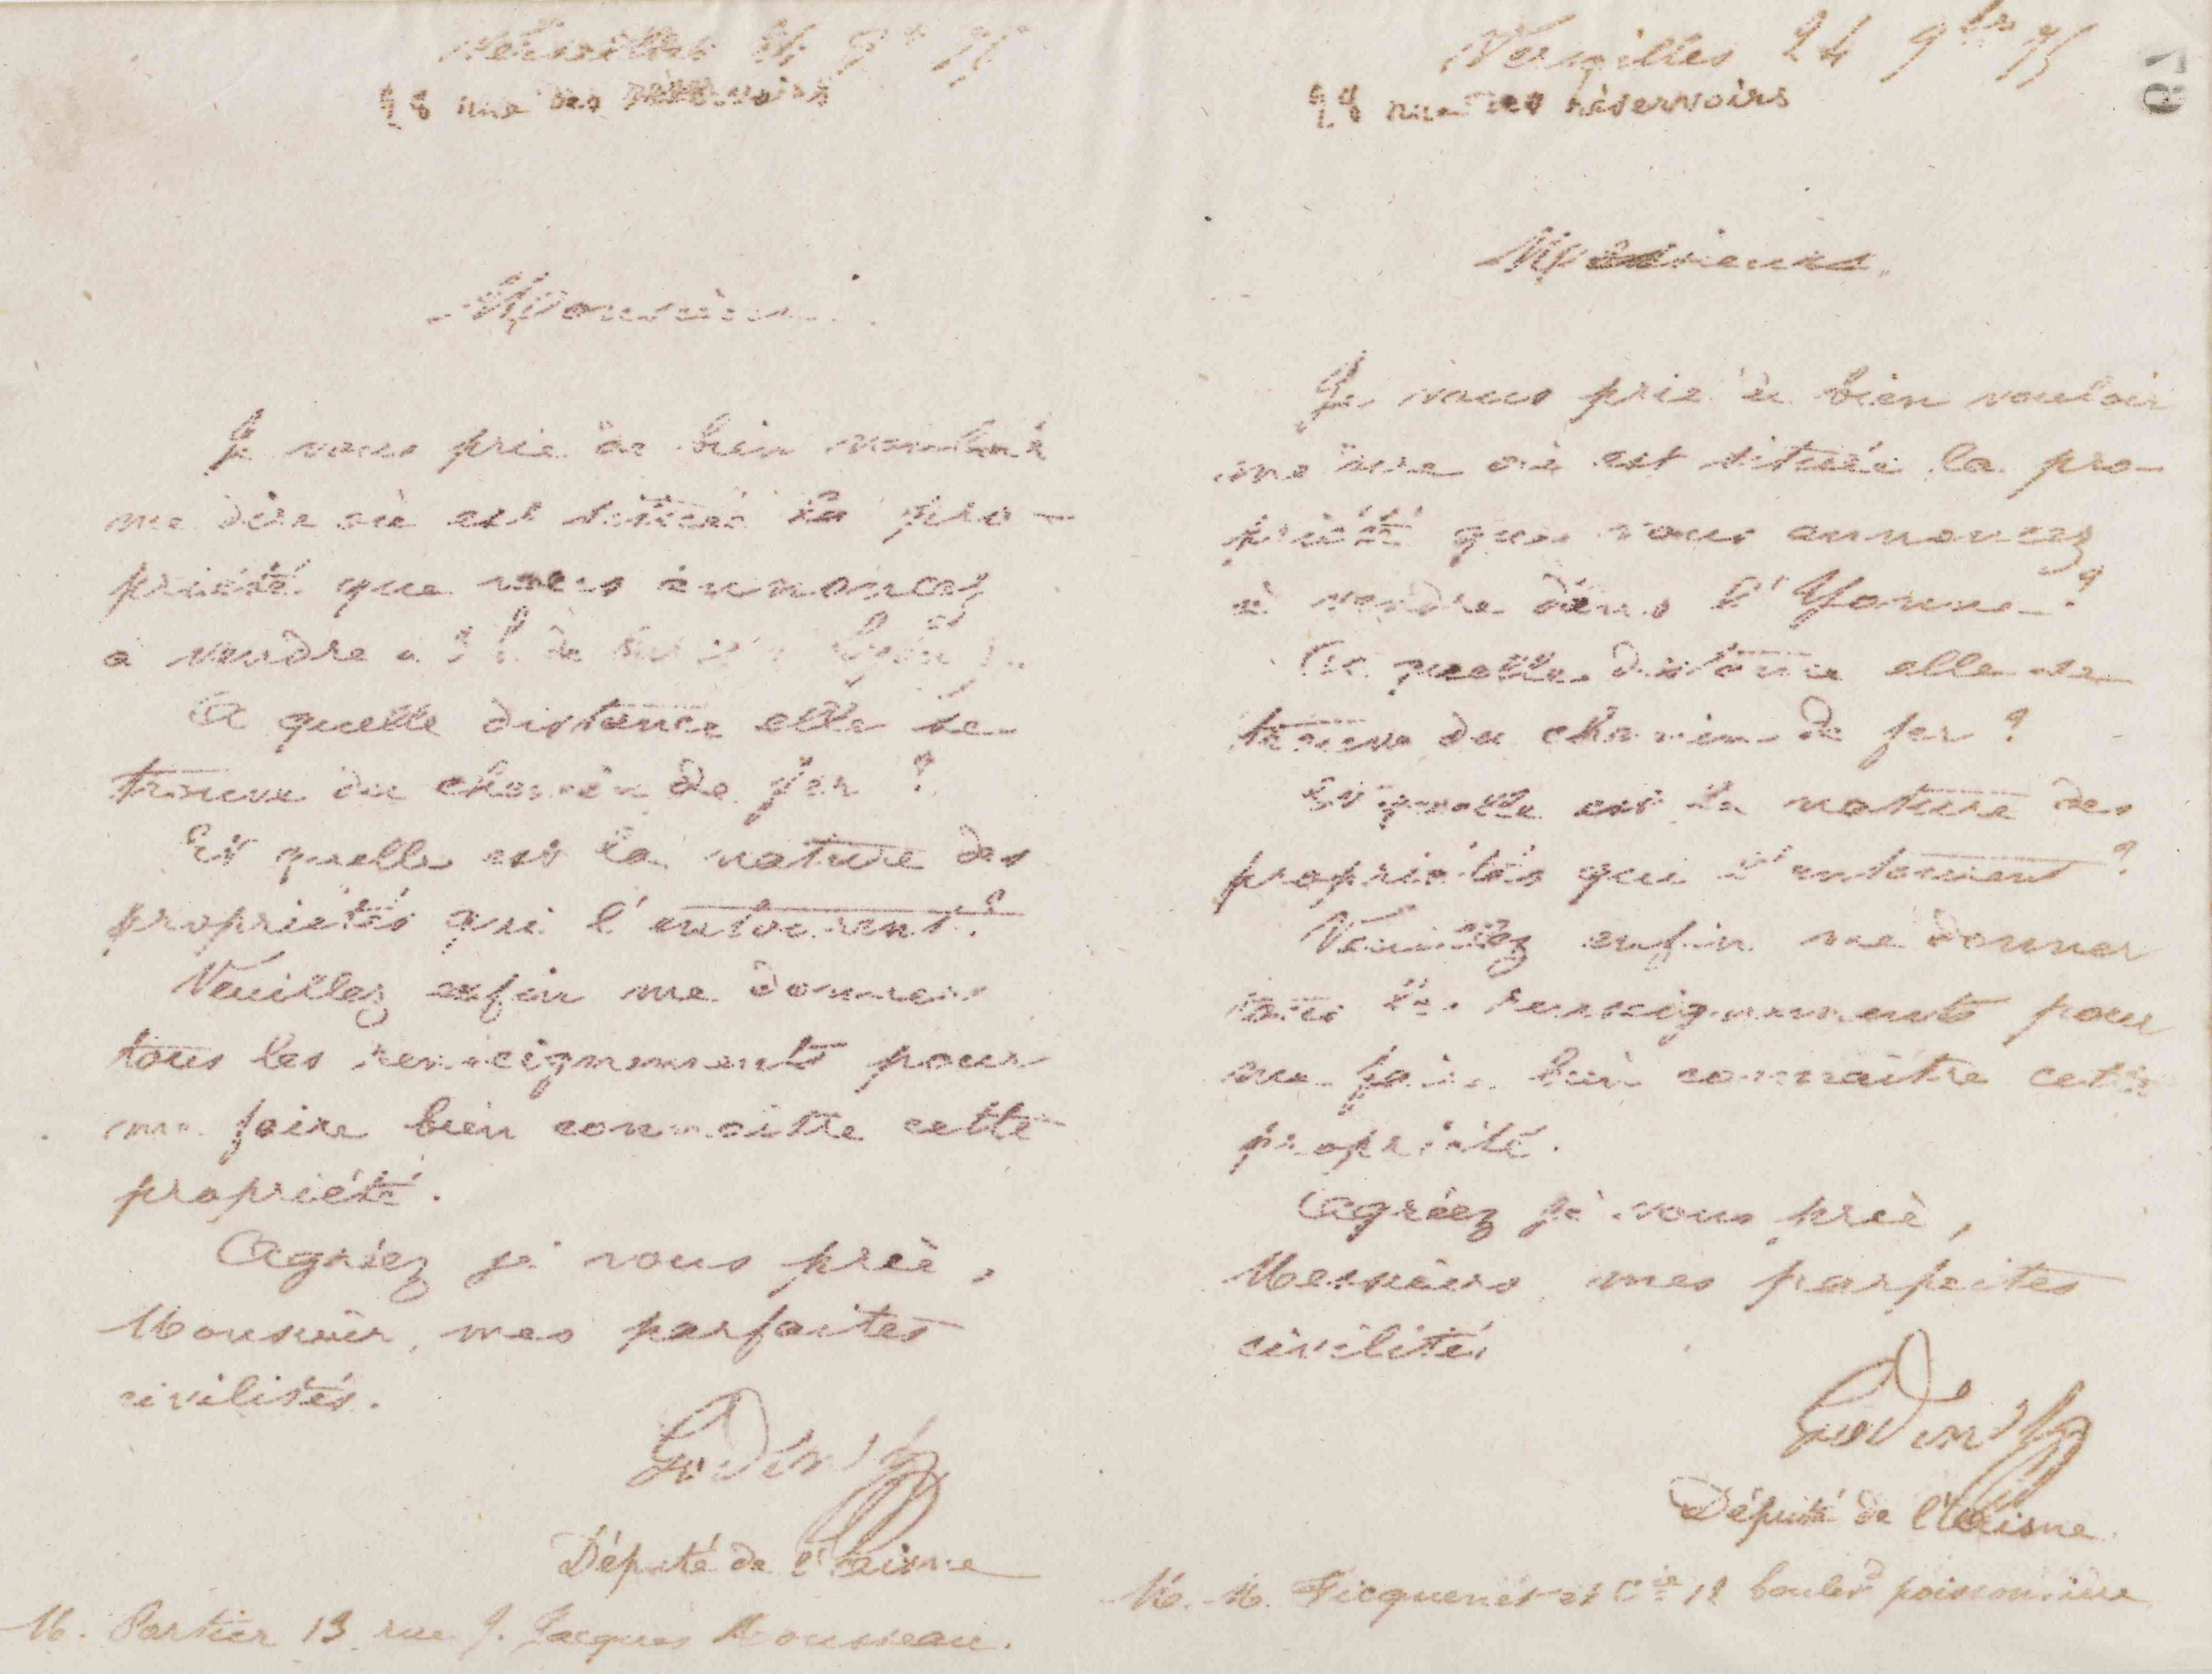 Versailles 24 9bre 75
28 rue des réservoirs
Monsieur
Je vous prie de bien vouloir
me dire où est située la pro-
priété que vous annoncez
à vendre à de
A quelle distance elle se
trouve du chemin de fer ?
Et quelle est la nature des
propriétés qui l'entourent ?
Veuillez enfin me donner
tous les renseignements pour
me faire bien connaître cette
propriété.
Agréez je vous prie,
Monsieur, mes parfaites
civilités.
Godin
Député de l'Aisne
M. Portier 13 rue J. Jacques Rousseau.
Versailles 24 9bre 75
28 rue des réservoirs
Messieurs
Je vous prie de bien vouloir
me dire où est située la pro-
priété que vous annoncez
à vendre dans l'Yonne ?
A quelle distance elle se
trouve du chemin de fer ?
Et quelle est la nature des
propriétés qui l'entourent ?
Veuillez enfin me donner
tous les renseignements pour
me faire bien connaître cette
propriété.
Agréez je vous prie,
Messieurs mes parfaites
civilités
Godin
Député de l'Aisne
M. M. Ficquenet et Cie 12 boulevd poissonnière